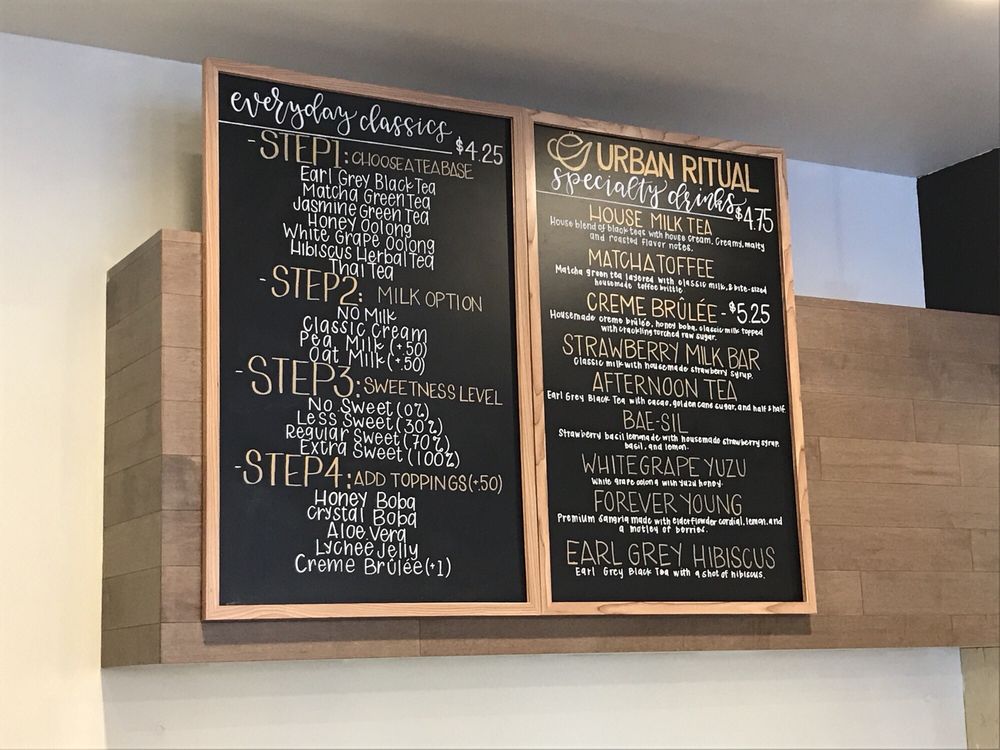 everyday classics
$4.25
-STEP1: CHOOSE A TEA BASE
Earl Grey Black Tea
Matcha Green Tea
Jasmine Green Tea
Honey Oolong
White Grape Oolong
Hibiscus Herbal Tea
Thai Tea
-STEP2: MILK OPTION
No Milk
Classic Cream
Pea Milk (+.50)
Oat Milk (+.50)
-STEP3: SWEETNESS LEVEL
No Sweet (0%)
Less Sweet (30%)
Regular Sweet (70%)
Extra Sweet (100%)
-STEP4: ADD TOPPINGS (+.50)
Honey Boba
Crystal Boba
Aloe Vera
Lychee Jelly
Creme Brûlée (+1)
URBAN RITUAL
specialty drinks
$4.75
HOUSE MILK TEA
House blend of black teas with house cream. Creamy, malty
and roasted flavor notes.
MATCHA TOFFEE
Matcha green tea layered with classic milk, & bite-sized
housemade toffee brittle
CREME BRÛLÉE - $5.25
Housemade creme brûlée, honey boba, classic milk topped
with crackling torched raw sugar.
STRAWBERRY MILK BAR
Classic milk with housemade strawberry syrup.
AFTERNOON TEA
Earl Grey Black Tea with cacao, golden cane sugar, and half & half.
BAE-SIL
Strawberry basil lemonade with housemade strawberry syrup,
basil, and lemon.
WHITE GRAPE YUZU
White grape oolong with yuzu honey.
FOREVER YOUNG
Premium sangria made with elderflower cordial, lemon, and
a motley of berries.
EARL GREY HIBISCUS
Earl Grey Black Tea with a shot of hibiscus.